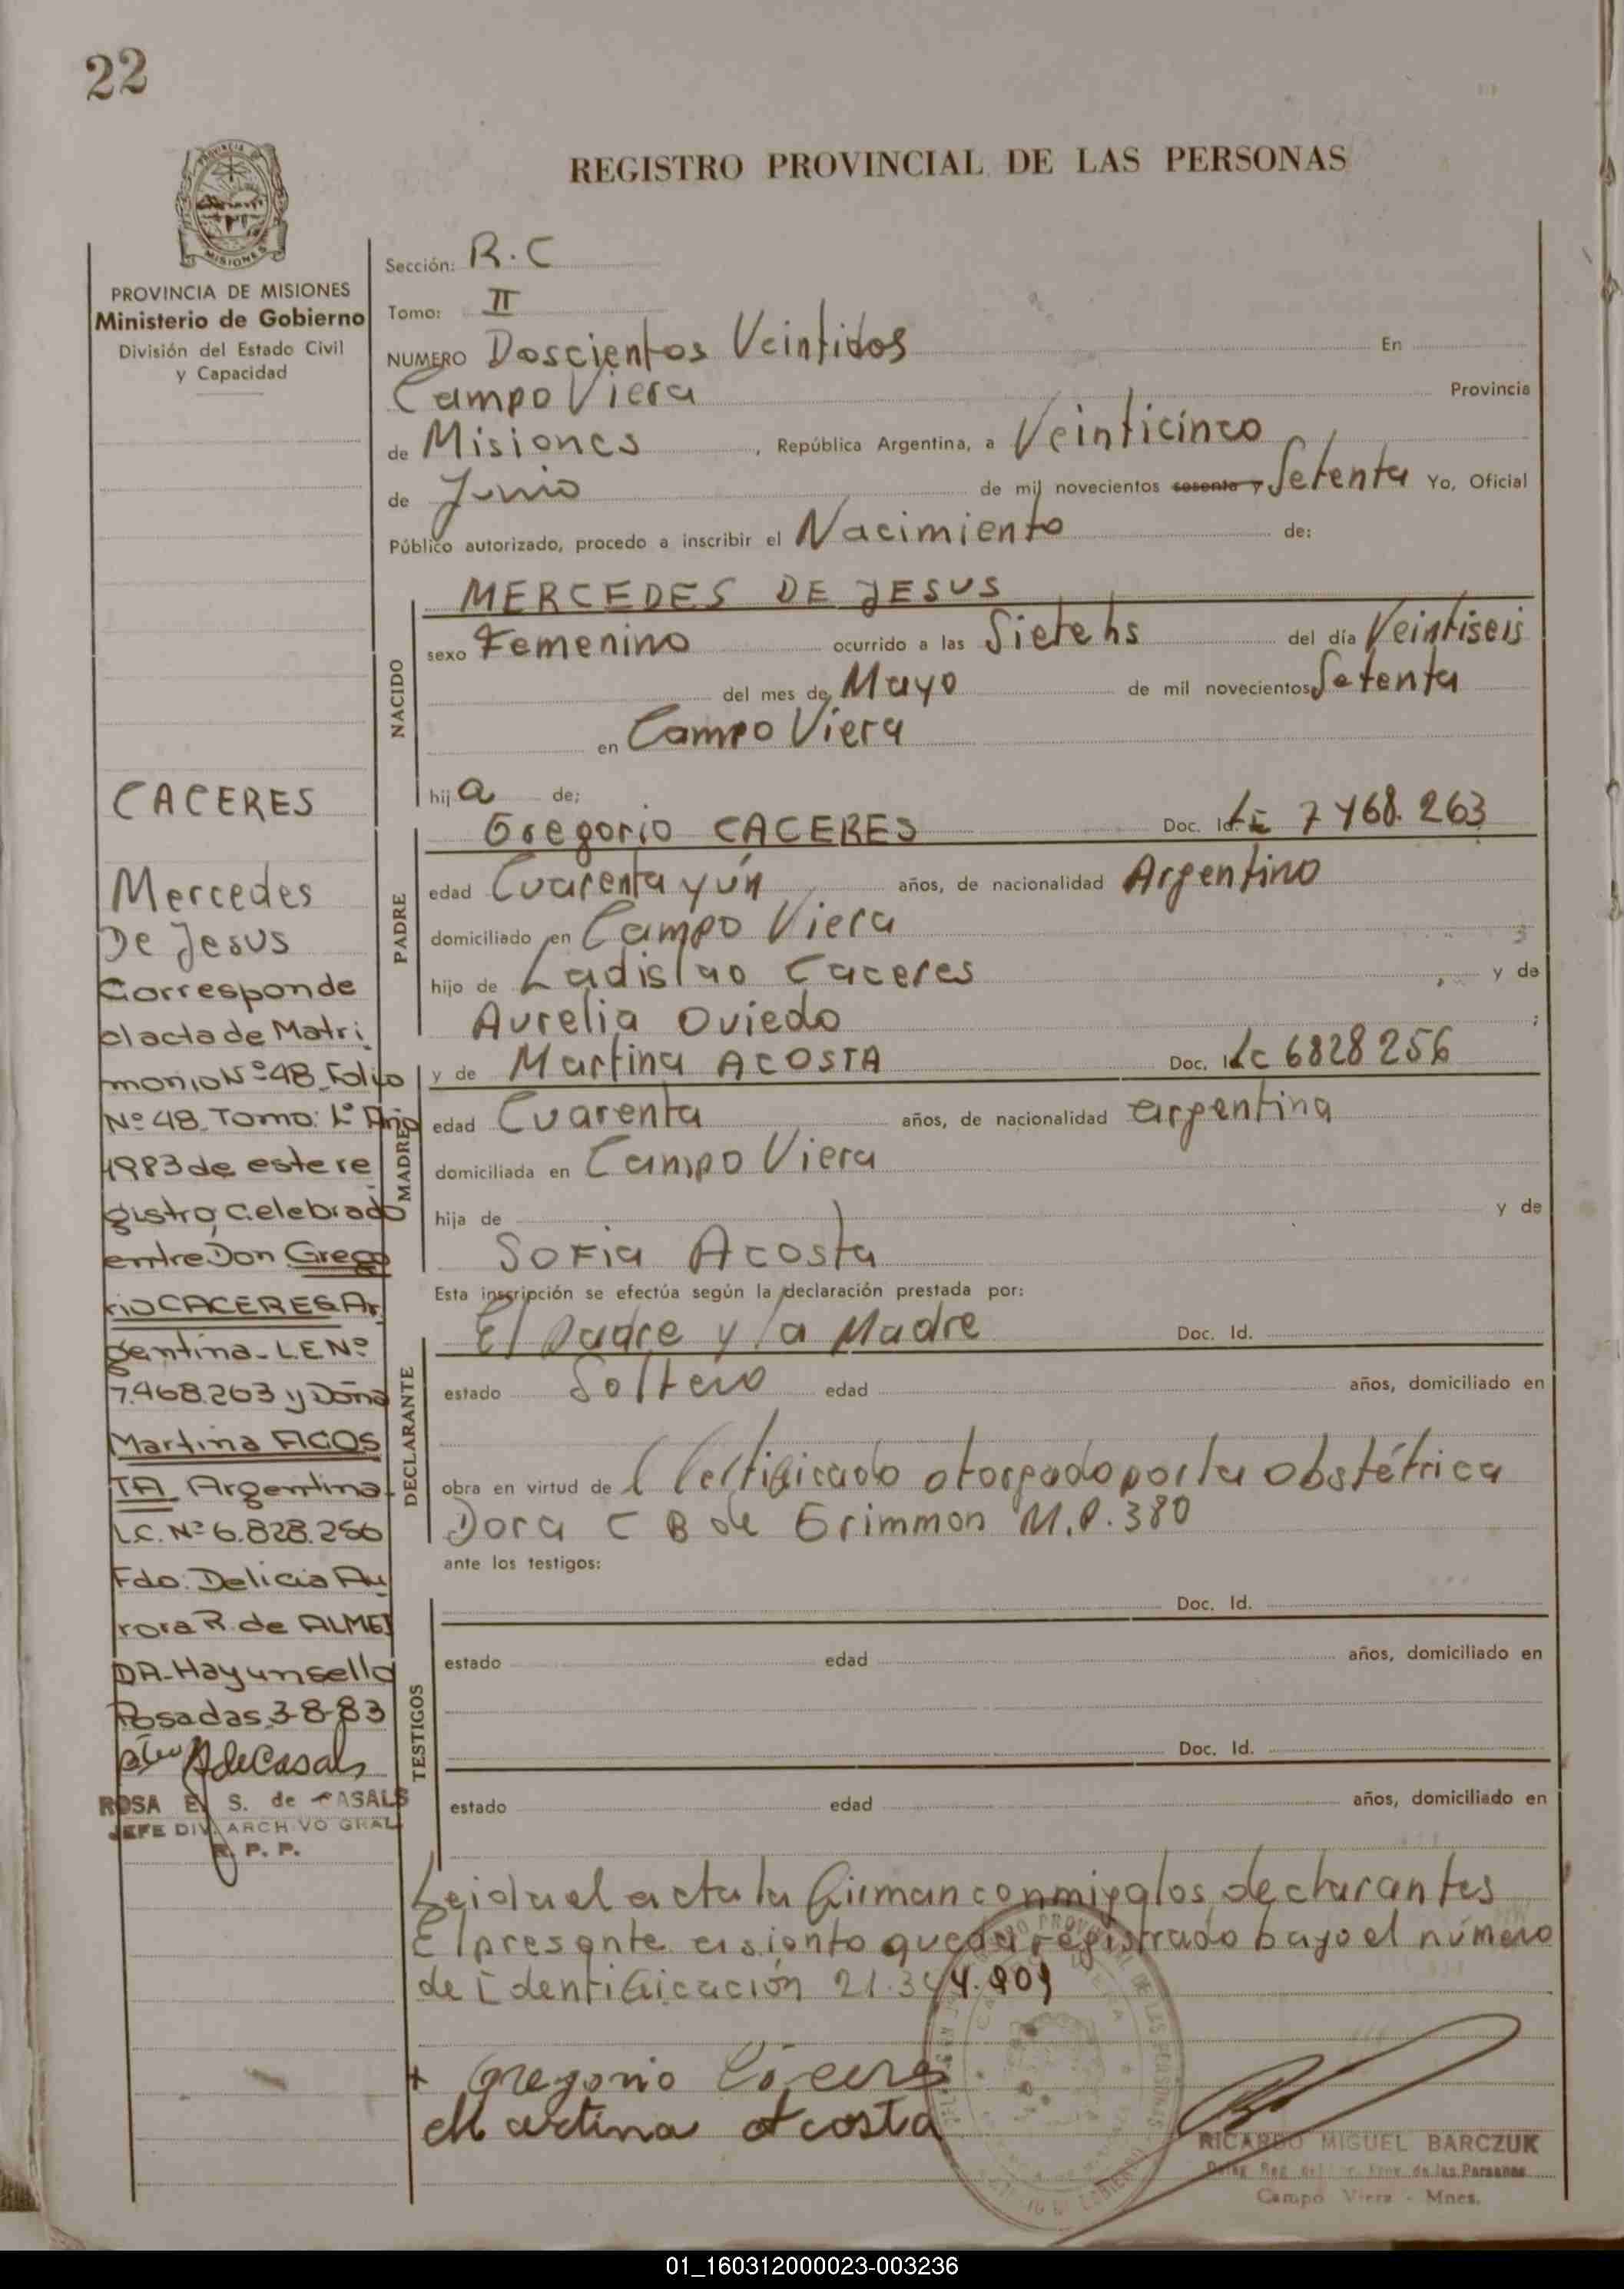 22
REGISTRO PROVINCIAL DE LAS PERSONAS
PROVINCIA DE MISIONES
Ministerio de Gobierno
División del Estado Civil
y Capacidad
CACERES
Mercedes
De Jesus
Corresponde
al acta de Matri
monio Nº 48 Folio
Nº 48 Tomo: 1º Año
1983 de este re
gistro, celebrado
entre Don Grego
rio CACERES Ar
gentina - L.E Nº
7.468.263 y Doña
Martina ACOS
TA Argentina
L.C. Nº 6.828.256
Fdo: Delicia Au
rora R. de ALMEI
DA - Hay un sello
Posadas, 3-8-83
AdeCasals
ROSA E. S. de CASALS
JEFE DIV. ARCHIVO GRAL.
R. P. P.
Sección: R.C
Tomo: II
NUMERO Doscientos Veintidos En
Campo Viera Provincia
de Misiones, República Argentina, a Veinticinco
de Junio de mil novecientos sesenta y Setenta Yo, Oficial
Público autorizado, procedo a inscribir el Nacimiento de:
NACIDO
MERCEDES DE JESUS
sexo Femenino ocurrido a las Siete hs del día Veintiseis
del mes de Mayo de mil novecientos Setenta
en Campo Viera
hija de:
PADRE
Gregorio CACERES Doc. Id. LE 7468.263
edad Cuarenta y ún años, de nacionalidad Argentino
domiciliado en Campo Viera
hijo de Ladislao Caceres y de
Aurelia Oviedo ;
MADRE
y de Martina ACOSTA Doc. Id. LC 6828256
edad Cuarenta años, de nacionalidad argentina
domiciliada en Campo Viera
hija de y de
Sofia Acosta
Esta inscripción se efectúa según la declaración prestada por:
DECLARANTE
El Padre y la Madre Doc. Id.
estado Soltero edad años, domiciliado en
obra en virtud de Certificado otorgado por la Obstétrica
Dora C B de Grimmon M.P. 380
ante los testigos:
TESTIGOS
Doc. Id.
estado edad años, domiciliado en
Doc. Id.
estado edad años, domiciliado en
Leida el acta la firman conmigo los declarantes
El presente asiento queda registrado bajo el número
de Identificación
Gregorio Cáceres
Martina Acosta
RICARDO MIGUEL BARCZUK
Campo Viera - Mnes.
01_160312000023-003236